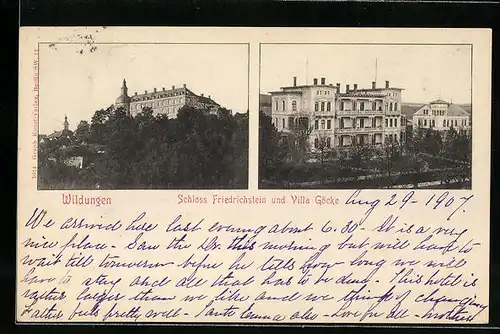 Wildungen
Schloss Friedrichstein und Villa Göcke
Aug 29 - 1907.
We arrived here last evening about 6.30 - It is a very
nice place - Saw the Dr. this morning but will have to
wait till tomorrow before he tells how long we will
have to stay and all that has to be done. - This hotel is
rather larger than we like and we think of changing
Father feels pretty well - Aunt Emma also - Love for all - Mother